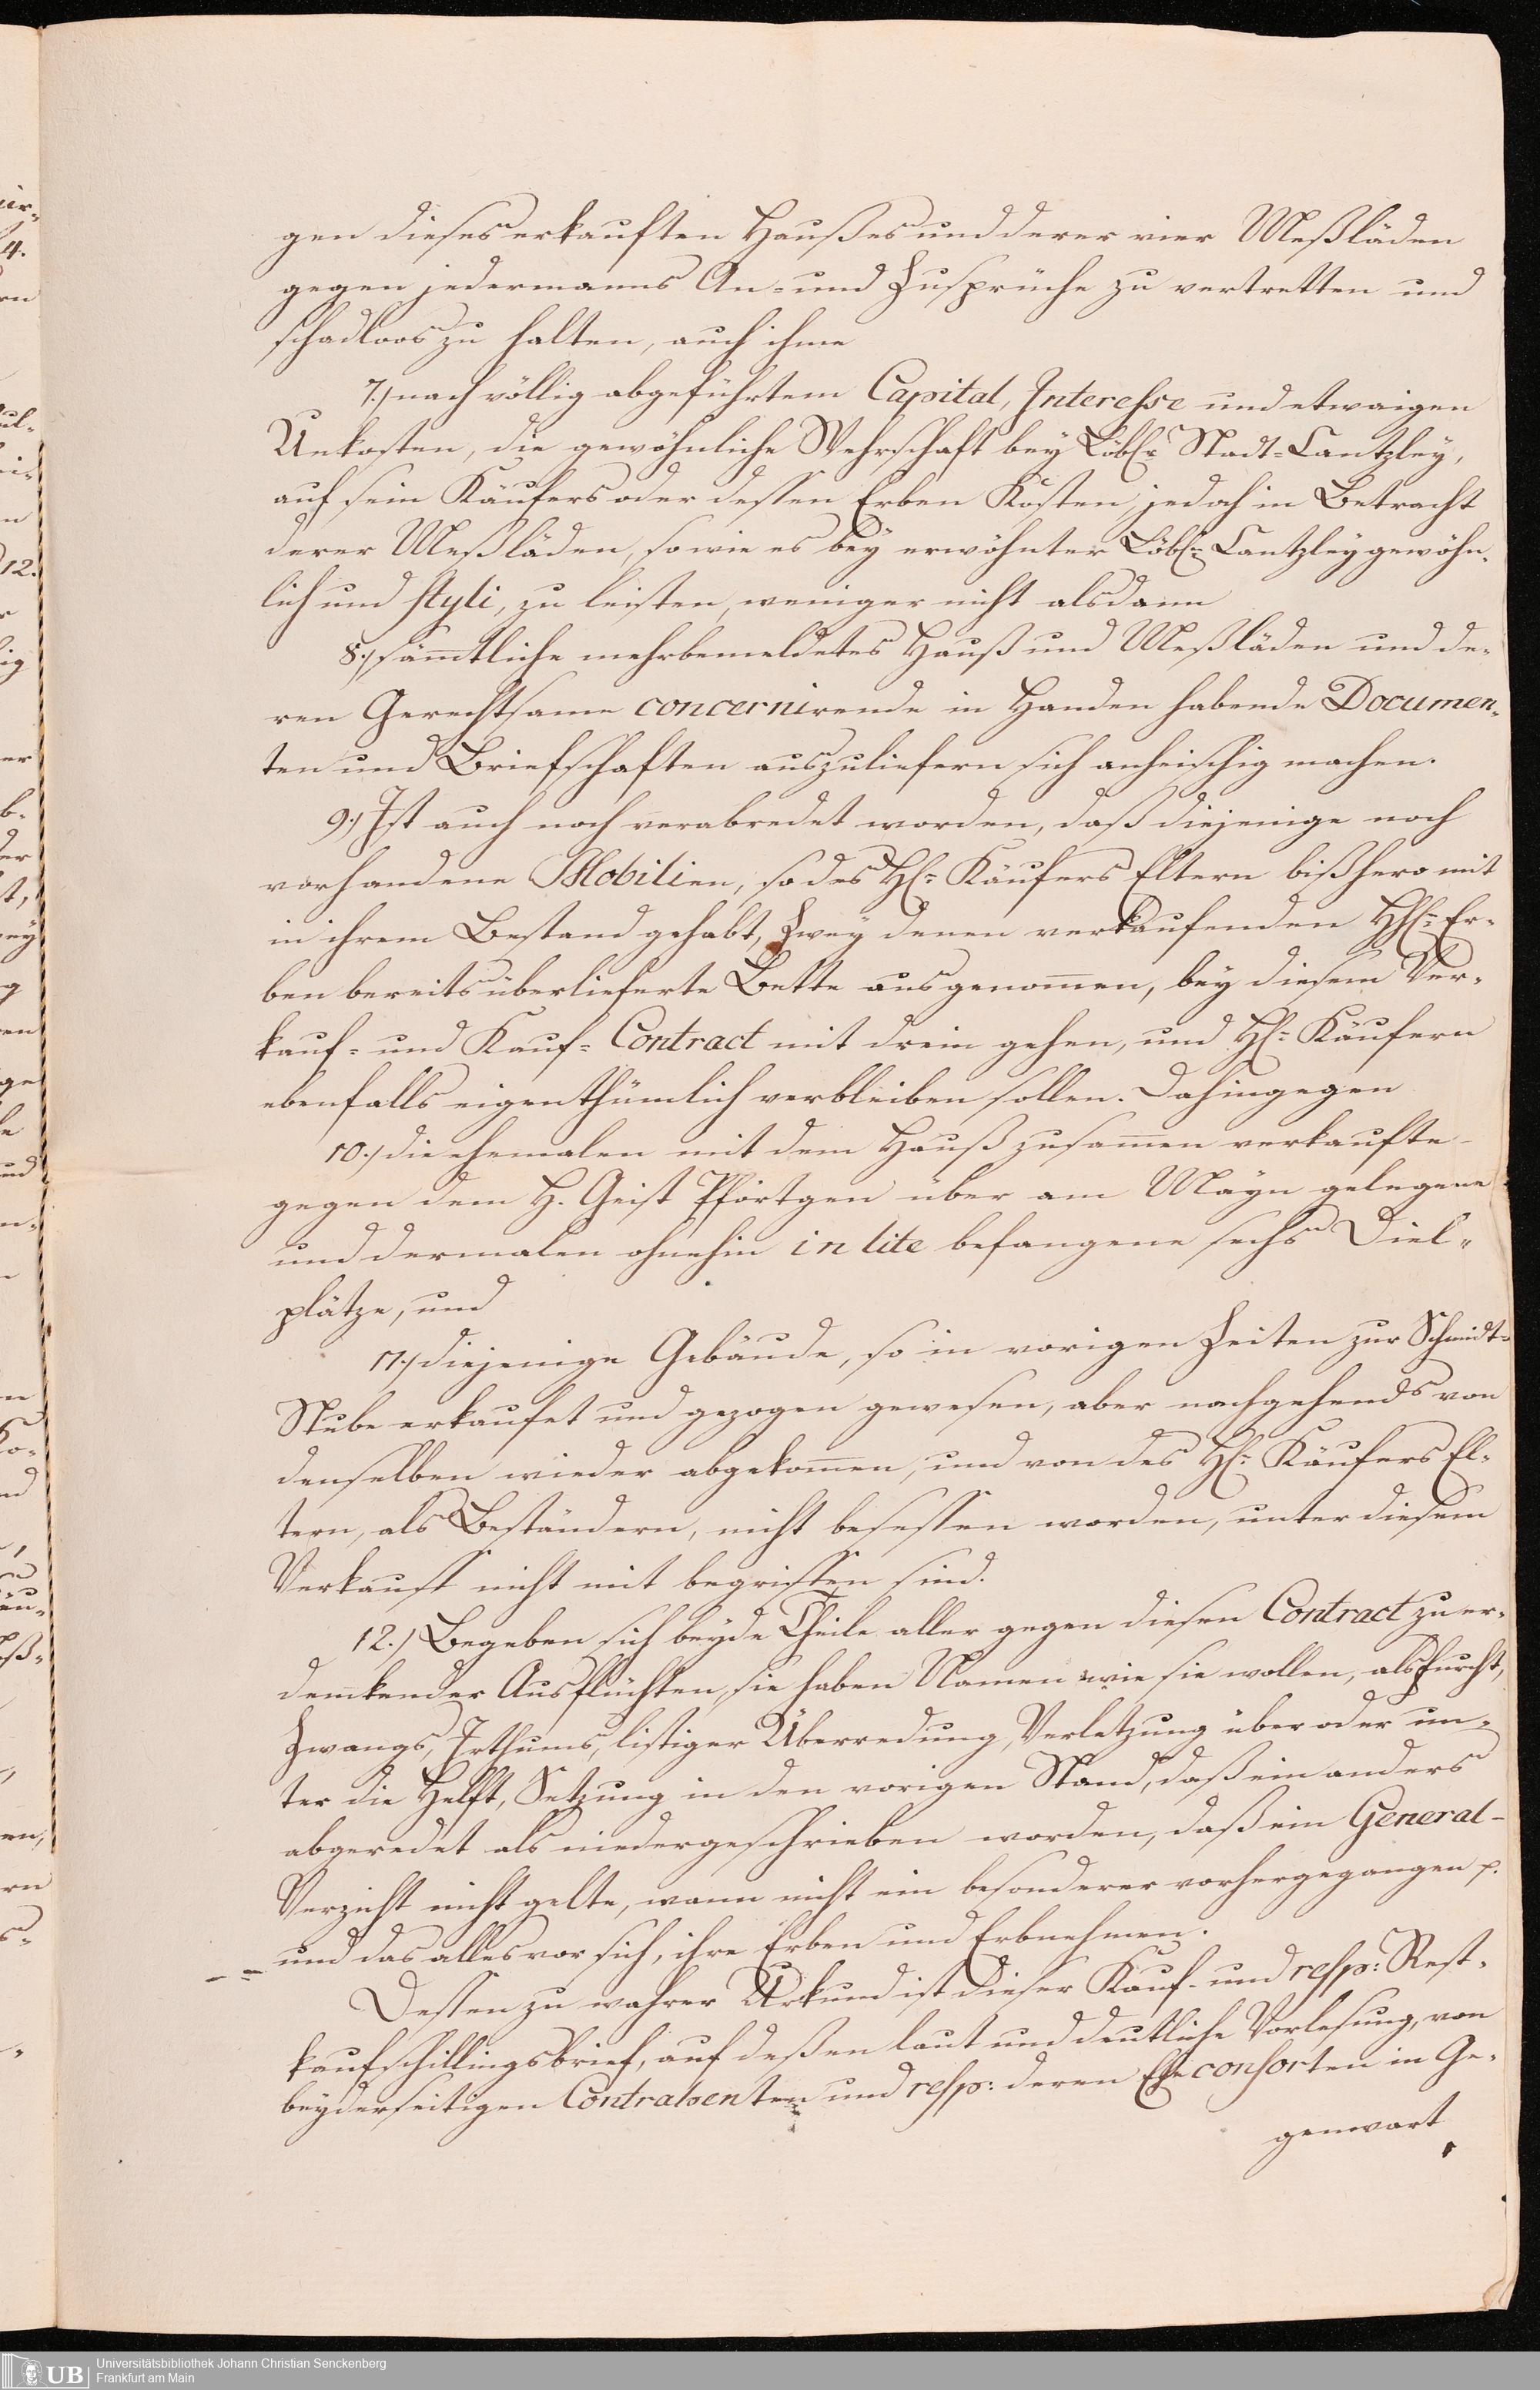 gen dieses erkauften Haußes und derer vier Meßläden
gegen jedermanns An- und Zusprüche zu vertretten und
schadloos zu halten, auch ihme
7.) nach völlig abgeführtem Capital, Interesse und etwaigen
Unkosten, die gewöhnliche Wehrschaft bey Löbl. Stadt-Cantzley,
auf sein Käufers oder dessen Erben Kosten, jedoch in Betracht
derer Meßläden, so wie es bey erwöhnter Löbl. Cantzley gewöhn-
lich und styli, zu leisten, weniger nicht alsdann
8.) sämtliche mehrbemeldetes Hauß und Meßläden und de-
ren Gerechtsame concernirende in Handen habende Documen-
ten und Briefschaften auszuliefern sich anheischig machen.
9.) Ist auch noch verabredet worden, daß diejenige noch
vorhandene Mobilien, so des H. Käufers Eltern bißhero mit
in ihrem Bestand gehabt, Zwey denen verkaufenden HH. Er-
ben bereits überlieferte Bette ausgenomen, bey diesem Ver-
kauf- und Kauf-Contract mit drein gehen, und H. Käufern
ebenfalls eigenthümlich verbleiben sollen. Dahingegen
10.) die ehemalen mit dem Hauß zusamen verkaufte
gegen dem H. Geist Pförtgen über am Mayn gelegene
und dermalen ohnehin in lite befangene sechs Diel-
plätze, und
11.) diejenige Gebäude, so in vorigen Zeiten zur Schmidt-
Stube erkaufet und gezogen gewesen, aber nachgehends von
denselben wieder abgekomen, und von des H. Käufers El-
tern, als Beständern, nicht besessen worden, unter diesem
Verkauff nicht mit begriffen sind.
12.) Begeben sich beyde Theile aller gegen diesen Contract zu er-
denkender Ausflüchten, sie haben Namen wie sie wollen, als Furcht,
Zwangs, Irthums, listiger Überredung, Verletzung über oder un-
ter die Helft, Setzung in den vorigen Stand, daß ein anders
abgeredet als niedergeschrieben worden, daß ein General-
Verzicht nicht gelte, wann nicht ein besonderer vorhergegangen p.
und das alles vor sich, ihre Erben und Erbnehmen.
Dessen zu wahrer Urkund ist dieser Kauf- und resp: Rest-
kaufschillingsbrief, auf deßen laut und deutliche Vorlesung, von
beyderseitigen Contrahenten und resp: deren Ehe consorten in Ge-
genwart
UB Universitätsbibliothek Johann Christian Senckenberg
Frankfurt am Main